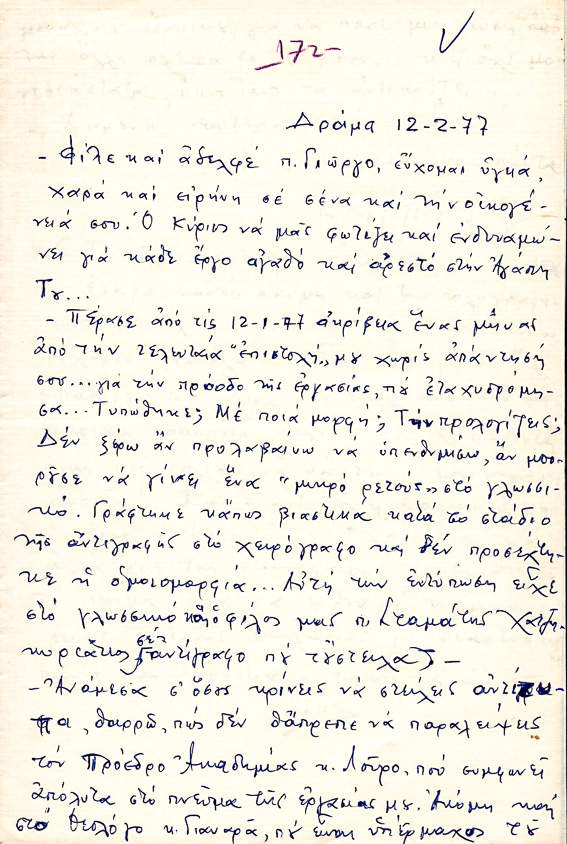 172-
Δράμα 12-2-77
- Φίλε καί ἀδελφέ π. Γιώργο, εὔχομαι ὑγειά,
χαρά καί εἰρήνη σέ σένα καί τήν οἰκογέ-
νειά σου. Ὁ Κύριος νά μᾶς φωτίζει καί ἐνδυναμώ-
νει γιά κάθε ἔργο ἀγαθό καί ἀρεστό στήν Ἀγάπη
Του...
- Πέρασε ἀπό τίς 12-1-77 ἀκρίβεια ἕνας μῆνας
ἀπό τήν τελευταία "ἐπιστολή,, μου χωρίς ἀπάντησή
σου... γιά τήν πρόοδο τῆς ἐργασίας, πού ἐταχυδρόμη-
σα... Τυπώθηκε; Μέ ποιά μορφή; Τήν προλογίζεις;
Δέν ξέρω ἄν προλαβαίνω νά ὑπενθυμίσω, ἄν μπο-
ροῦσε νά γίνει ἕνα "μικρό ρετούς,, στό γλωσσι-
κό. Γράφτηκε κάπως βιαστικά κατά τό στάδιο
τῆς ἀντιγραφῆς στό χειρόγραφο καί δέν προσέχτη-
κε ἡ ὁμοιομορφία... Αὐτή τήν ἐντύπωση εἶχε
στό γλωσσικό καί ὁ φίλος μας π. Σταμάτης Χατζη-
σέ ἀντίγραφο πού τοὔστειλα) -
- Ἀνάμεσα σ' ὅσους κρίνεις νά στείλεις ἀντίτυ-
πα, θαρρῶ, πώς δέν θἄπρεπε νά παραλείψεις
τόν Πρόεδρο Ἀκαδημίας κ. Λοῦρο, πού συμφωνεῖ
ἀπόλυτα στό πνεῦμα τῆς ἐργασίας μου. Ἀκόμη καί
στό Θεολόγο κ. Γιανναρᾶ, πού εἶναι ὑπέρμαχος τοῦ